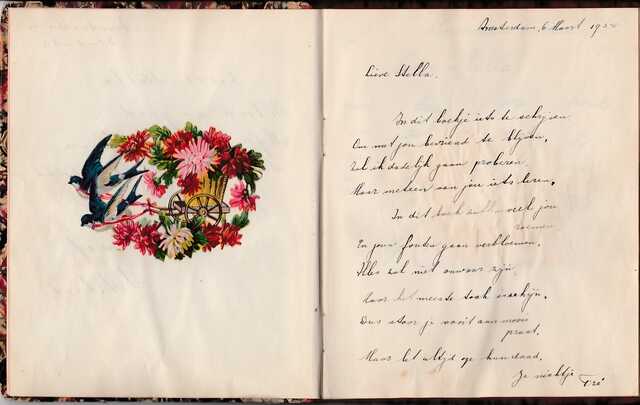 Amsterdam, 6 Maart 19
Lieve Stella.
In dit boekje iets te schrijven
Om met jou bevriend te blijven,
Zal ik dadelijk gaan proberen
Maar meteen van jou iets leren.
In dit boek zullen veel jou
roemen
En jouw fouten gaan verbloemen.
Alles zal niet onwaar zijn
door het meeste toch schijn.
Dus stoor je nooit aan mooie
praat.
Maar let altijd op hun daad.
Je nichtje Tré